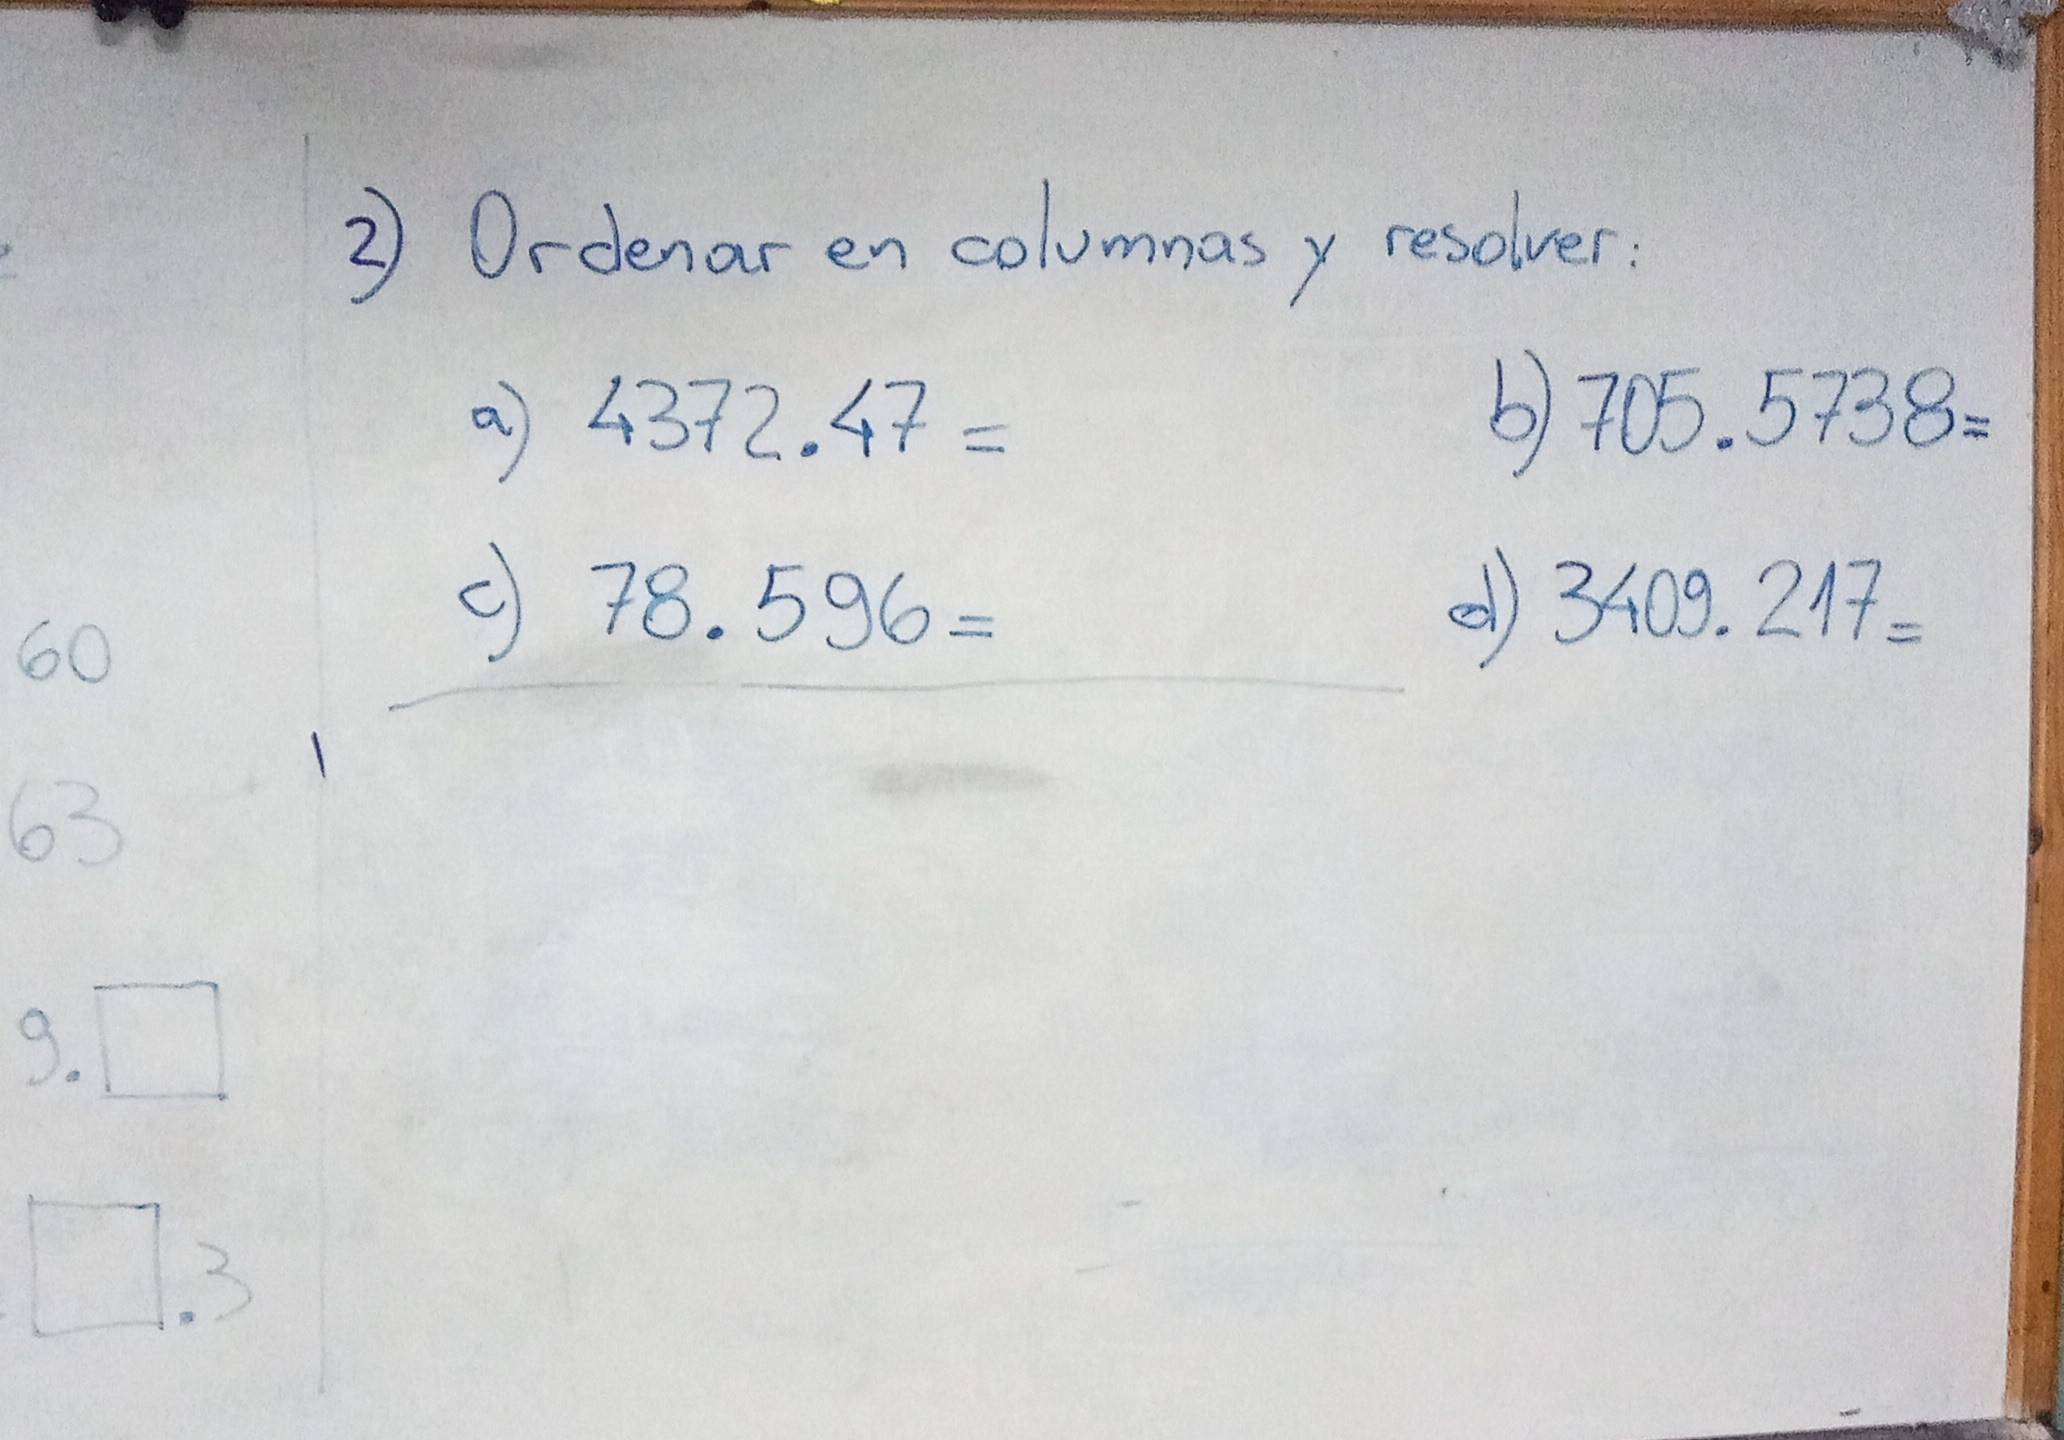 2) Ordenar en columnas y resolver:
a) 4372.47=
b) 705.5738=
c) 78.596=
d) 3409.217=
60
63
9.
.3